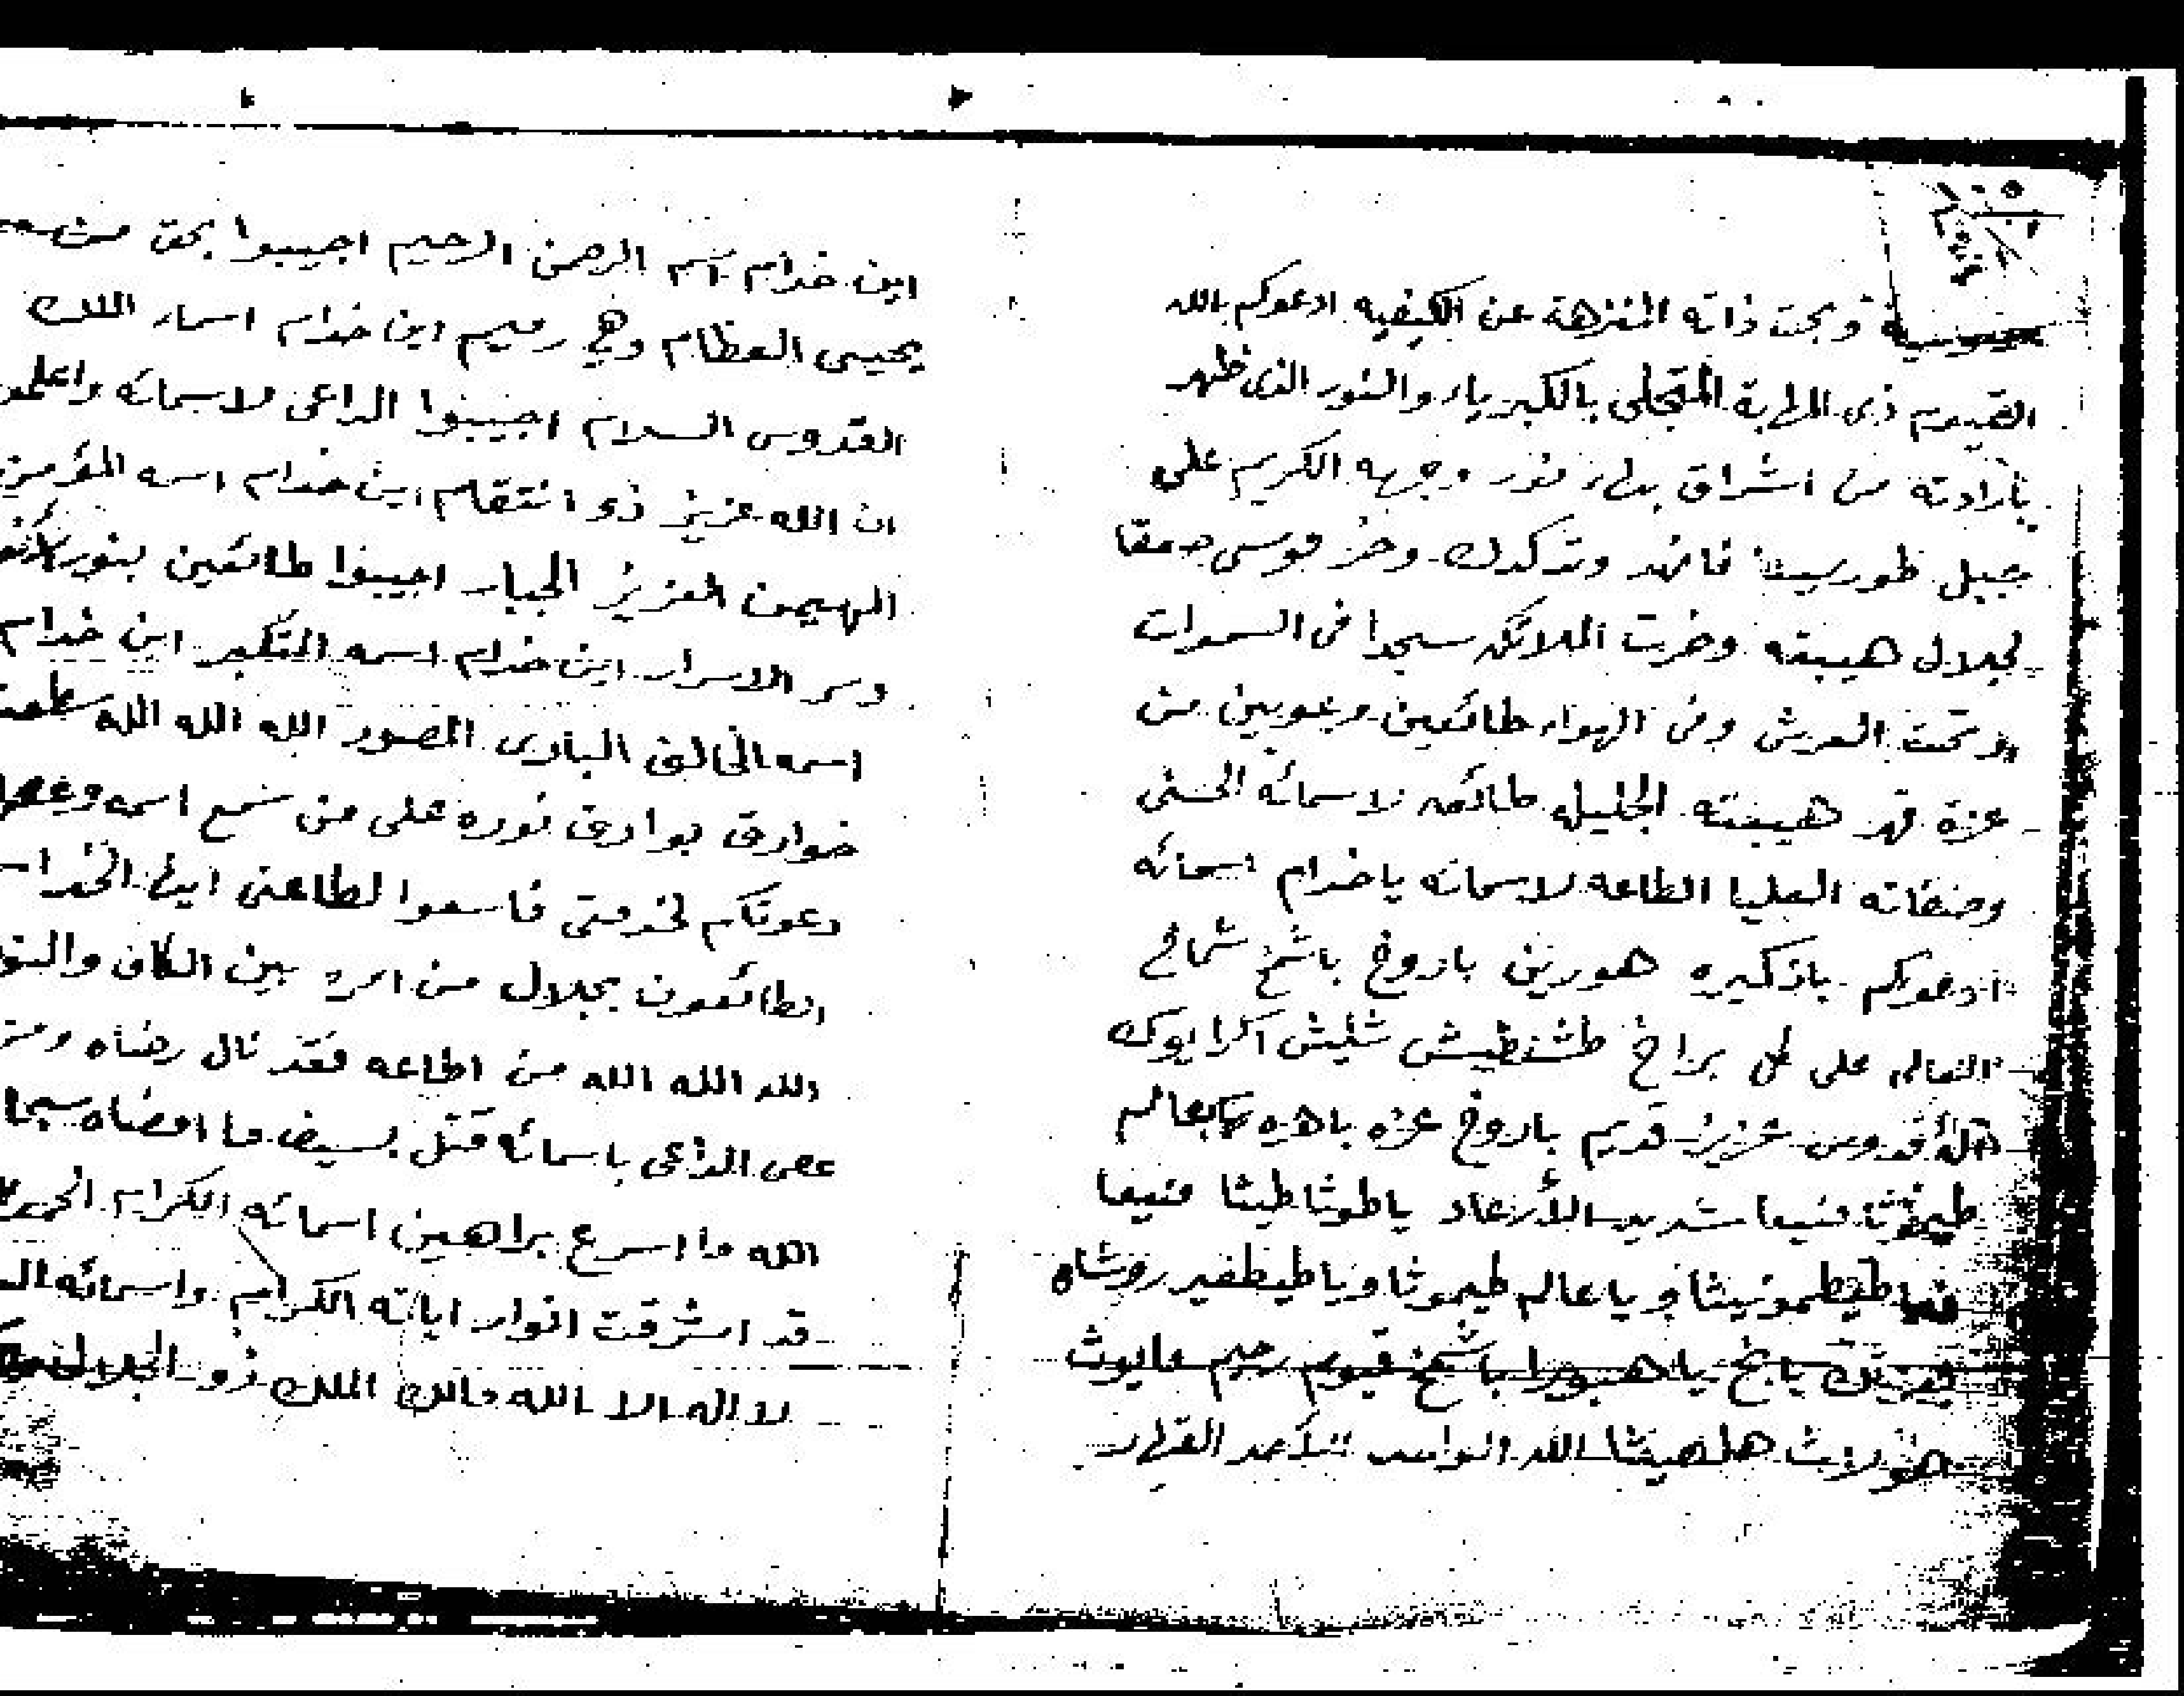 وبحق ذاته المنزهة عن الكيفيه ادعوكم بالله
القيوم ذى المهابة المتجلى بالكبرياء والنور الذى ظهر
بارادته من اشراق بهاء نور وجهه الكريم على
جبل طور سينا فانهد وتدكدك وخر موسى صعقا
لجلال هيبته وخرت الملائكه سجدا فى السموات
وتحت العرش وفى الهواء طائعين مرعوبين من
عزة قهر هيبته الجليل طائعه لاسمائه الحسنى
وصفاته العليا الطاعه لاسمائه ياخدام اسمائه
ادعوكم باذكيره هورين باروخ باشمخ شماخ
العالى على كل براخ طشنطيش شليش اكرا يوك
قدوس عزيز قديم باروخ عزه باهره
منيعا شديد الأرعاد ياطوثاطيثا منيعا
طيطمونيثا ويا عالم طيموثا ويا طيطفير روشاه
يا هبورا باشمخ قيوم رحيم مايوث
هلهيثا الله الواحد الأحد القهار
اين خدام اسم الرحمن الرحيم اجيبوا بحق من
يحيى العظام وهى رميم اين خدام اسماء الملك
القدوس السلام اجيبوا الداعى لاسمائه واعلموا
ان الله عزيز ذو انتقام اين خدام اسمه المؤمن
المهيمن العزيز الجبار اجيبوا طائعين بنور
وسر الاسرار اين خدام اسمه المتكبر اين خدام
اسمه الخالق البارى المصور الله الله الله
خوارق بوارق نوره على من سمع اسمه وعصا
دعوتكم لخدمتى فاسمعوا لطاعتى ايها الخدام
الطائعون بجلال من امره بين الكاف والنون
الله الله الله من اطاعه فقد نال رضاه ومن
عصى الداعى باسمائه قتل بسيف ما امضاه
الله ما اسرع براهين اسمائه الكرام
قد اشرقت انوار اياته الكرام واسمائه
لا اله الا الله مالك الملك ذو الجلال